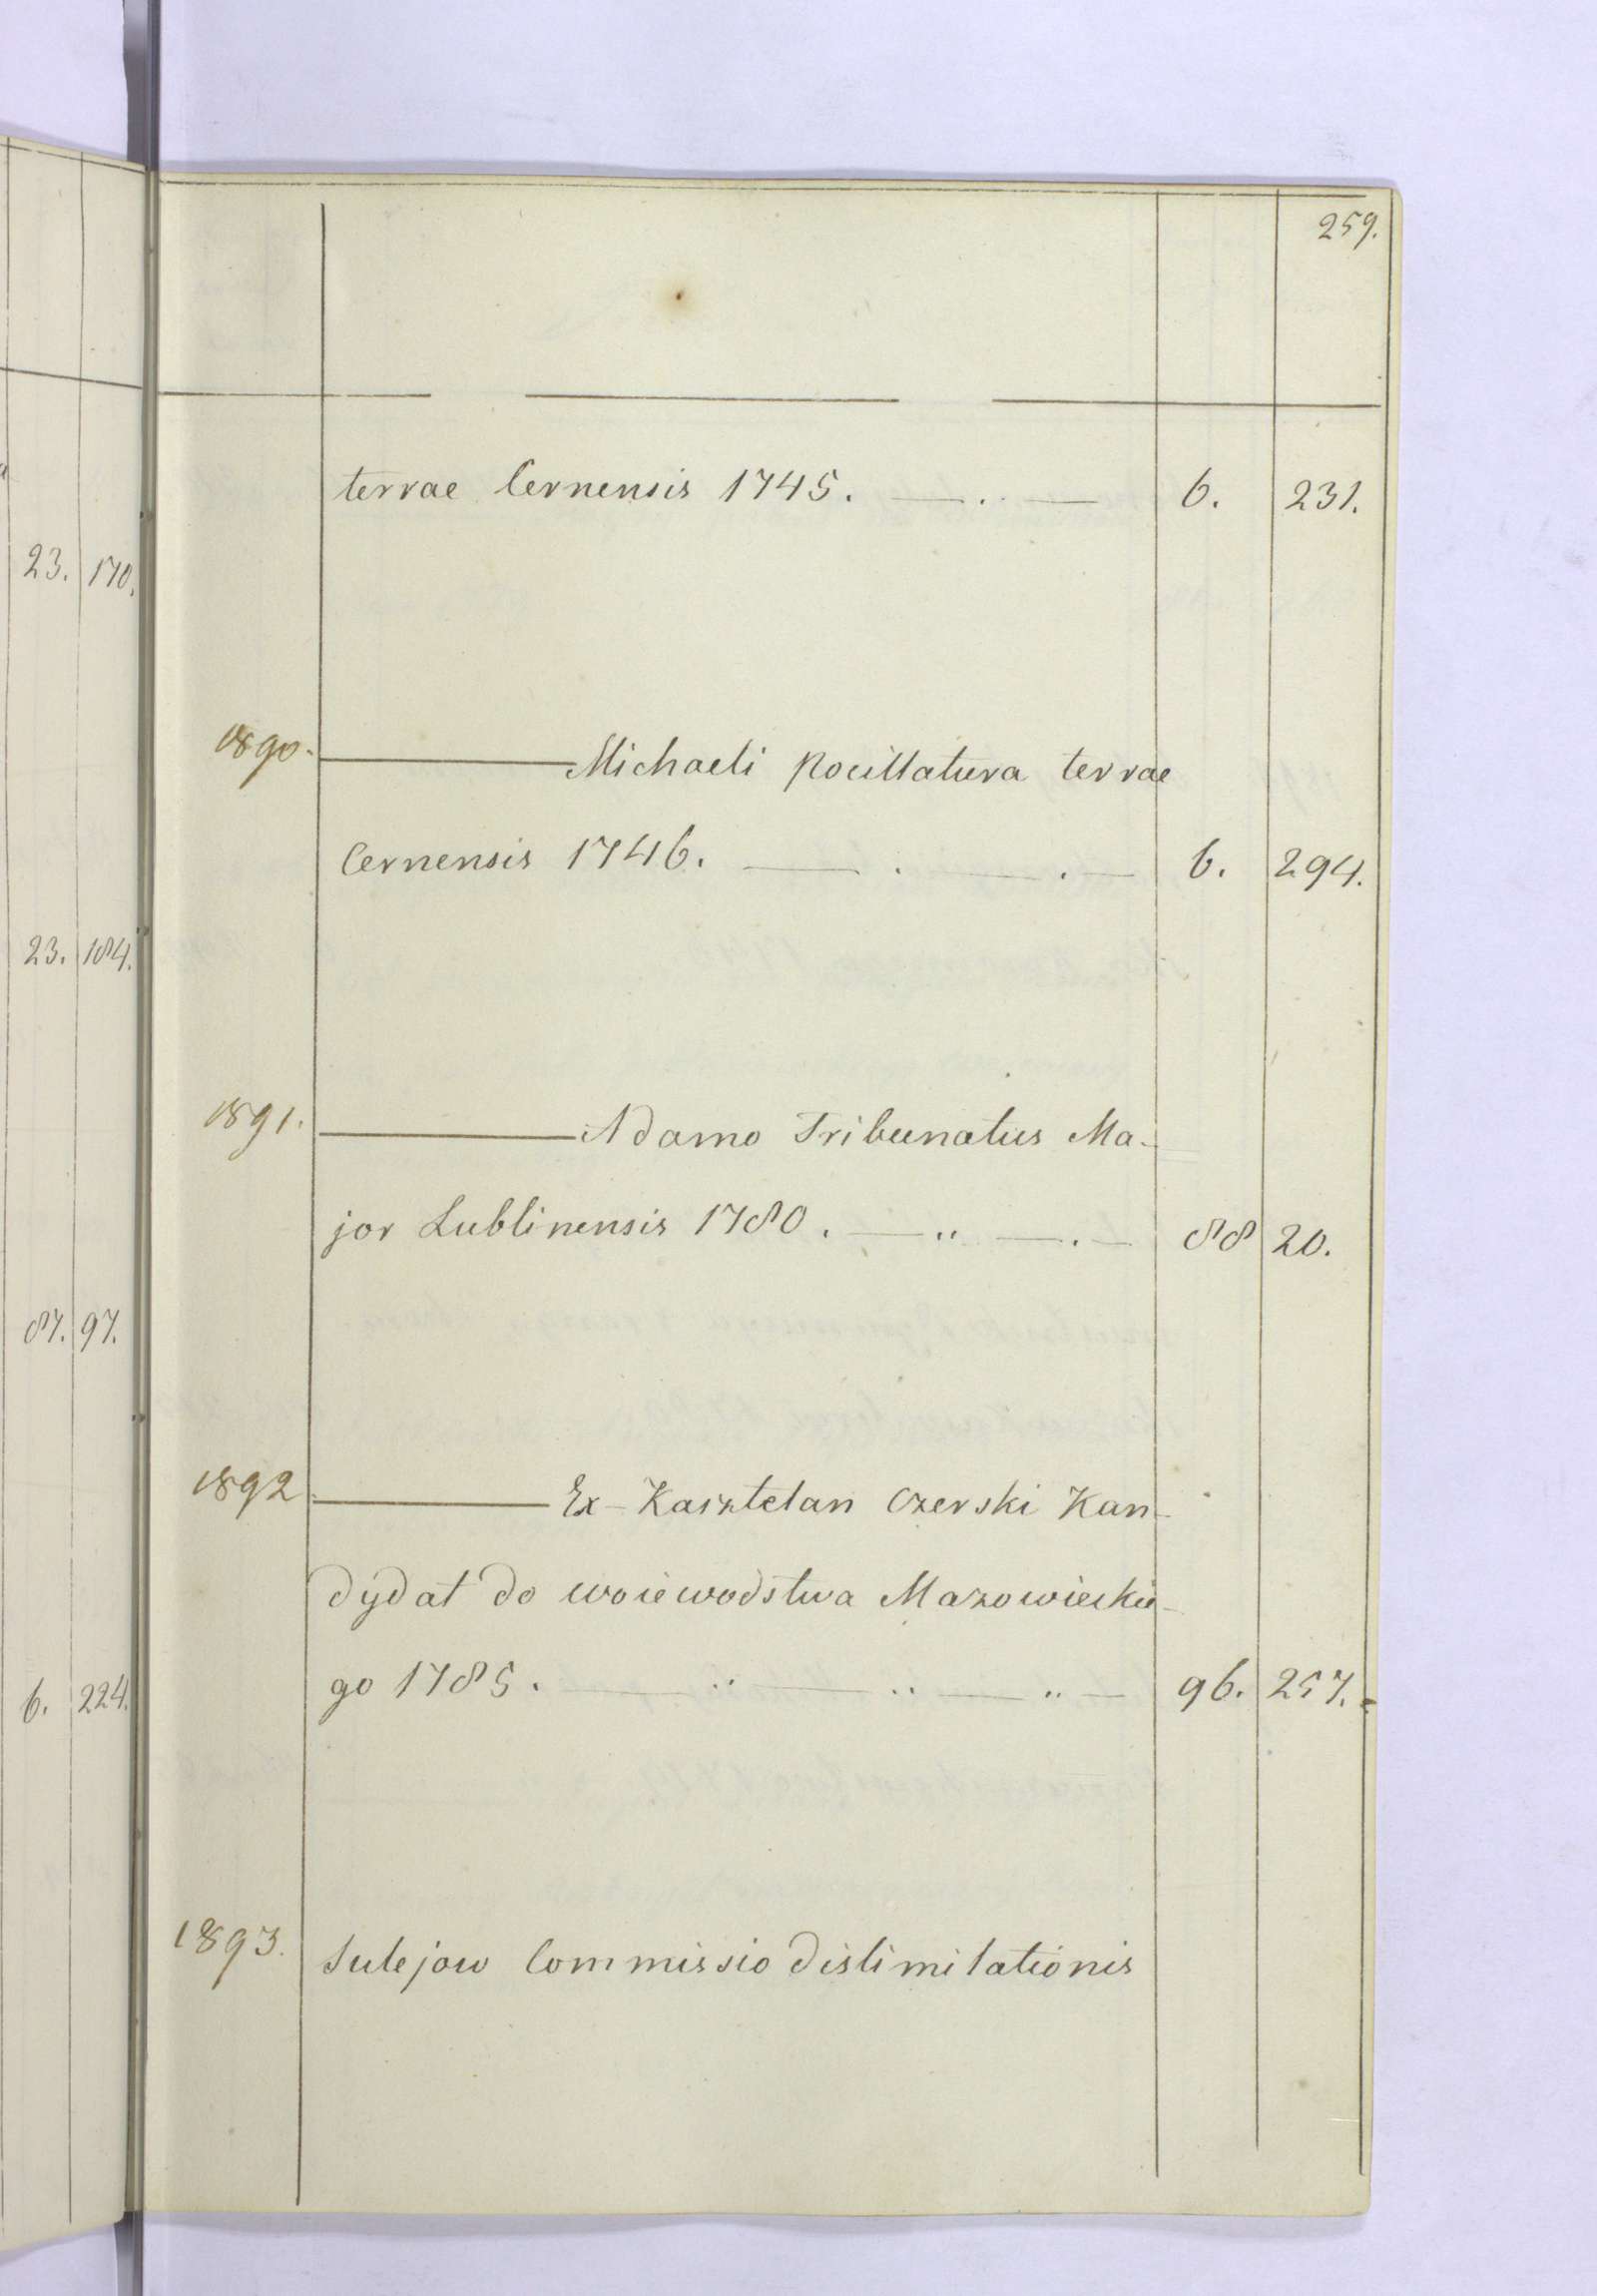 259.
terrae Cernensis 1745. 6. 231.
23. 170.
1890. Michaeli Pocillatura terrae
Cernensis 1746. 6. 294.
23. 184.
1891. Adamo Tribunatus Ma-
jor Lublinensis 1780. 88 20.
87. 97.
1892 Ex-Kasztelan Czerski Kan-
dydat do woiewodstwa Mazowieckie-
go 1785. 96. 257.
6. 224.
1893. Sulejow Commissio dislimitationis